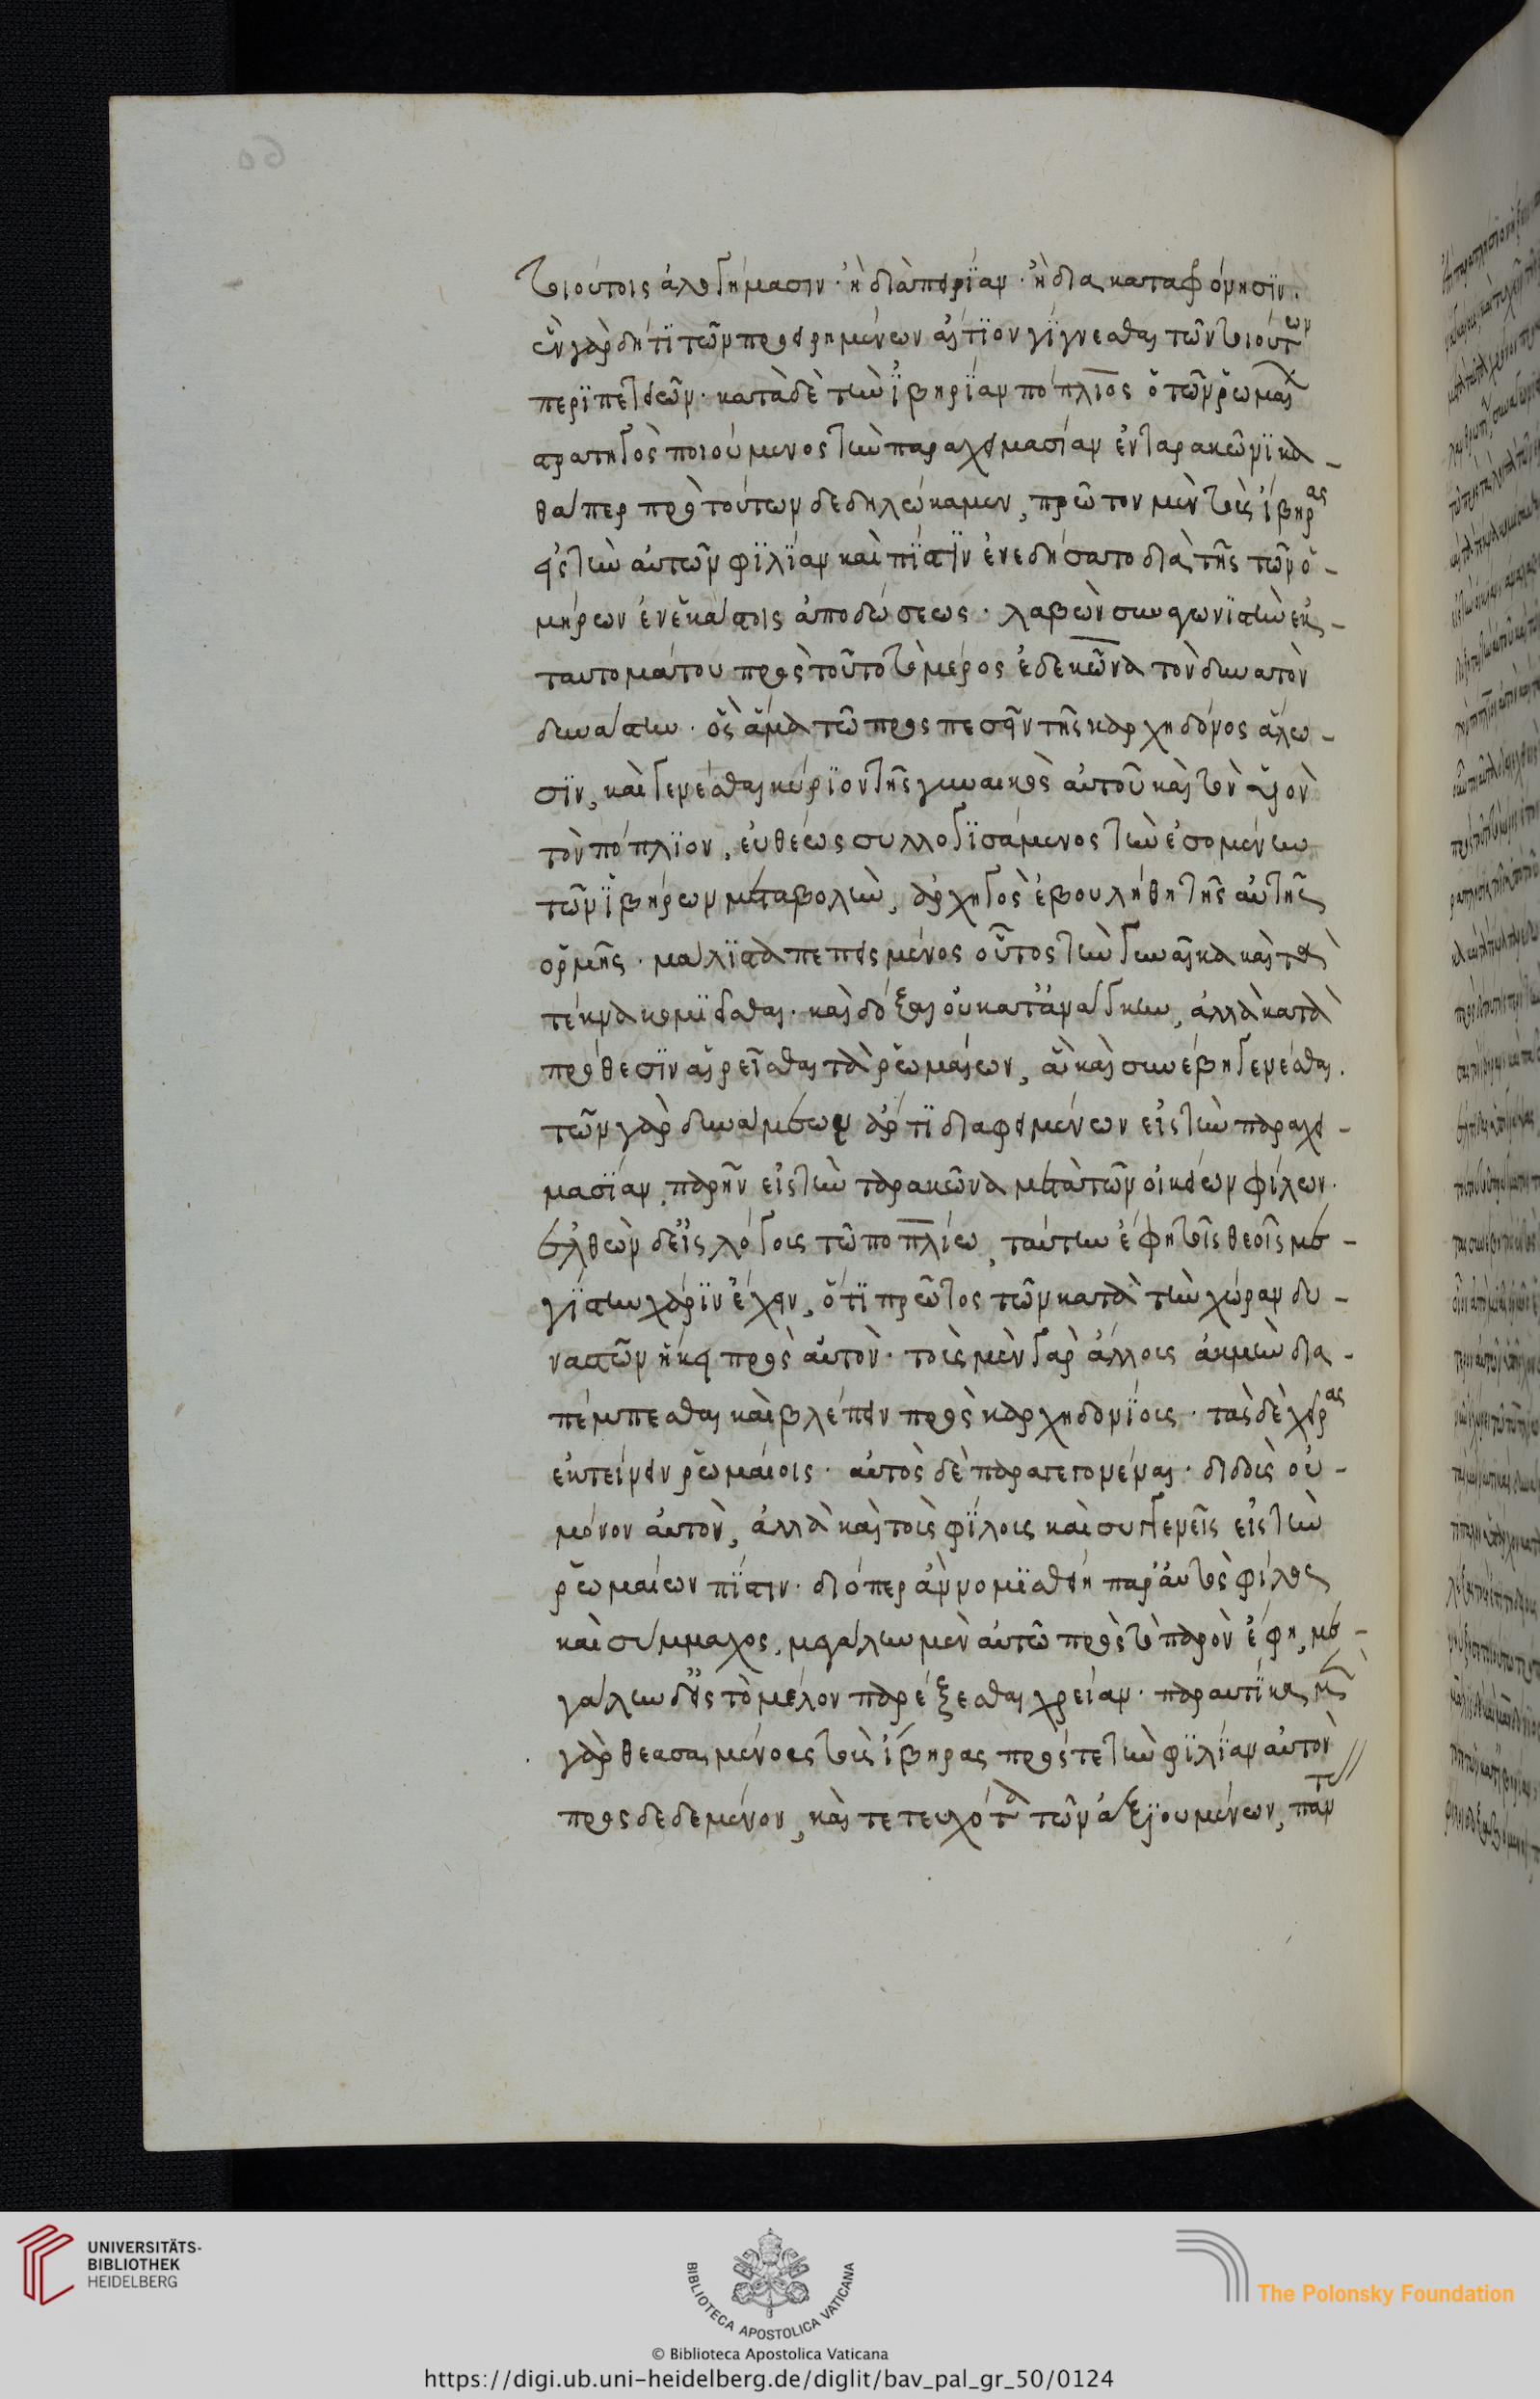 τοιούτοις ἀλογήμασιν· ἢ δι᾽ ἀπειρίαν· ἢ δια καταφρόνησϊν.
ἓν γὰρ δή τϊ τῶν προειρημένων αἴτϊον γίγνεσθαι τῶν τοιούτων
περϊπετειῶν· κατὰ δὲ τὴν ἰβηρίαν πόπλϊος ὁ τῶν ῥωμαί
στρατηγὸς ποιούμενος τὴν παραχειμασίαν ἐν ταρακῶνϊ κα-
θάπερ πρὸ τούτων δεδηλώκαμεν, πρῶτον μὲν τοὺς ἴβηρας
εἰς τὴν αὐτῶν φϊλϊαν καὶ πίστϊν ἐνεδήσατο διὰ τῆς τῶν ὁ-
μήρων ἑνεκάστοις ἀποδώσεως· λαβὼν συναγωνϊστὴν ἐκ-
ταυτομάτου πρὸς τοῦτο τὸ μέρος ἐδεκῶνα τὸν δυνατὸν
δυνάστην· ὃς ἅμα τῶ προσπεσεῖν τῆς καρχηδόνος ἅλω-
σϊν, καὶ γενέσθαι κύρϊον τῆς γυναικὸς αὐτοῦ καὶ τὸν ὑϊὸν
τὸν πόπλϊον, εὐθέως συλλογϊσάμενος τὴν ἐσομένην
τῶν ἰβήρων μεταβολὴν, ἀρχηγὸς ἐβουλήθη τῆς αὐτῆς
ὁρμῆς· μάλϊστα πεπεισμένος οὕτος τὴν γυναῖκα καὶ τὰ
τέκνα κομϊεῖσθαι· καὶ δόξαι οὐ κατ᾽ ἀνάγκην, ἀλλὰ κατὰ
πρόθεσϊν αἱρεῖσθαι τὰ ῥωμαίων, ἃ καὶ συνέβη γενέσθαι.
τῶν γὰρ δυνάμεων ἄρτϊ διαφειμένων εἰς τὴν παραχει-
μασίαν, παρῆν εἰς τὴν ταρακῶνα μετὰ τῶν οἰκείων φίλων.
ἐλθὼν δ᾽ εἰς λόγοις τῶ ποπλίω, ταύτην ἔφη τοῖς θεοῖς με-
γίστην χάρϊν ἔχειν, ὅτϊ πρῶτος τῶν κατὰ τὴν χώραν δυ-
ναστῶν ἥκει πρὸς αὐτὸν· τοὶς μὲν γὰρ ἄλλοις ἀκμὴν δια-
πέμπεσθαι καὶ βλέπειν πρὸς καρχηδονϊοις· τὰς δὲ χεῖρας
ἐκτείνειν ῥωμαίοις· αὐτὸς δὲ παραγεγονέναι· διδοὺς οὐ-
μόνον αὐτὸν, ἀλλὰ καὶ τοὶς φϊλοις καὶ συγγενεῖς εἰς τὴν
ῥωμαίων πίστιν· διόπερ ἂν νομϊσθείη παρ᾽ αὐτὸς φίλος
καὶ σύμμαχος, μεγάλην μὲν αὐτῶ πρὸς τὸ παρὸν ἔφη, με-
γάλην δ᾽ εἰς τὸ μέλον παρέξεσθαι χρείαν· παραυτίκα μὲν
γὰρ θεασαμένους τοὺς ἴβηρας πρός τε τὴν φϊλίαν αὐτὸν
προσδεδεμένον, καὶ τετευχότα τῶν ἀξϊουμένων, παντ
UNIVERSITÄTS-
BIBLIOTHEK
HEIDELBERG
BIBLIOTECA APOSTOLICA VATICANA
The Polonsky Foundation
© Biblioteca Apostolica Vaticana
https://digi.ub.uni-heidelberg.de/diglit/bav_pal_gr_50/0124